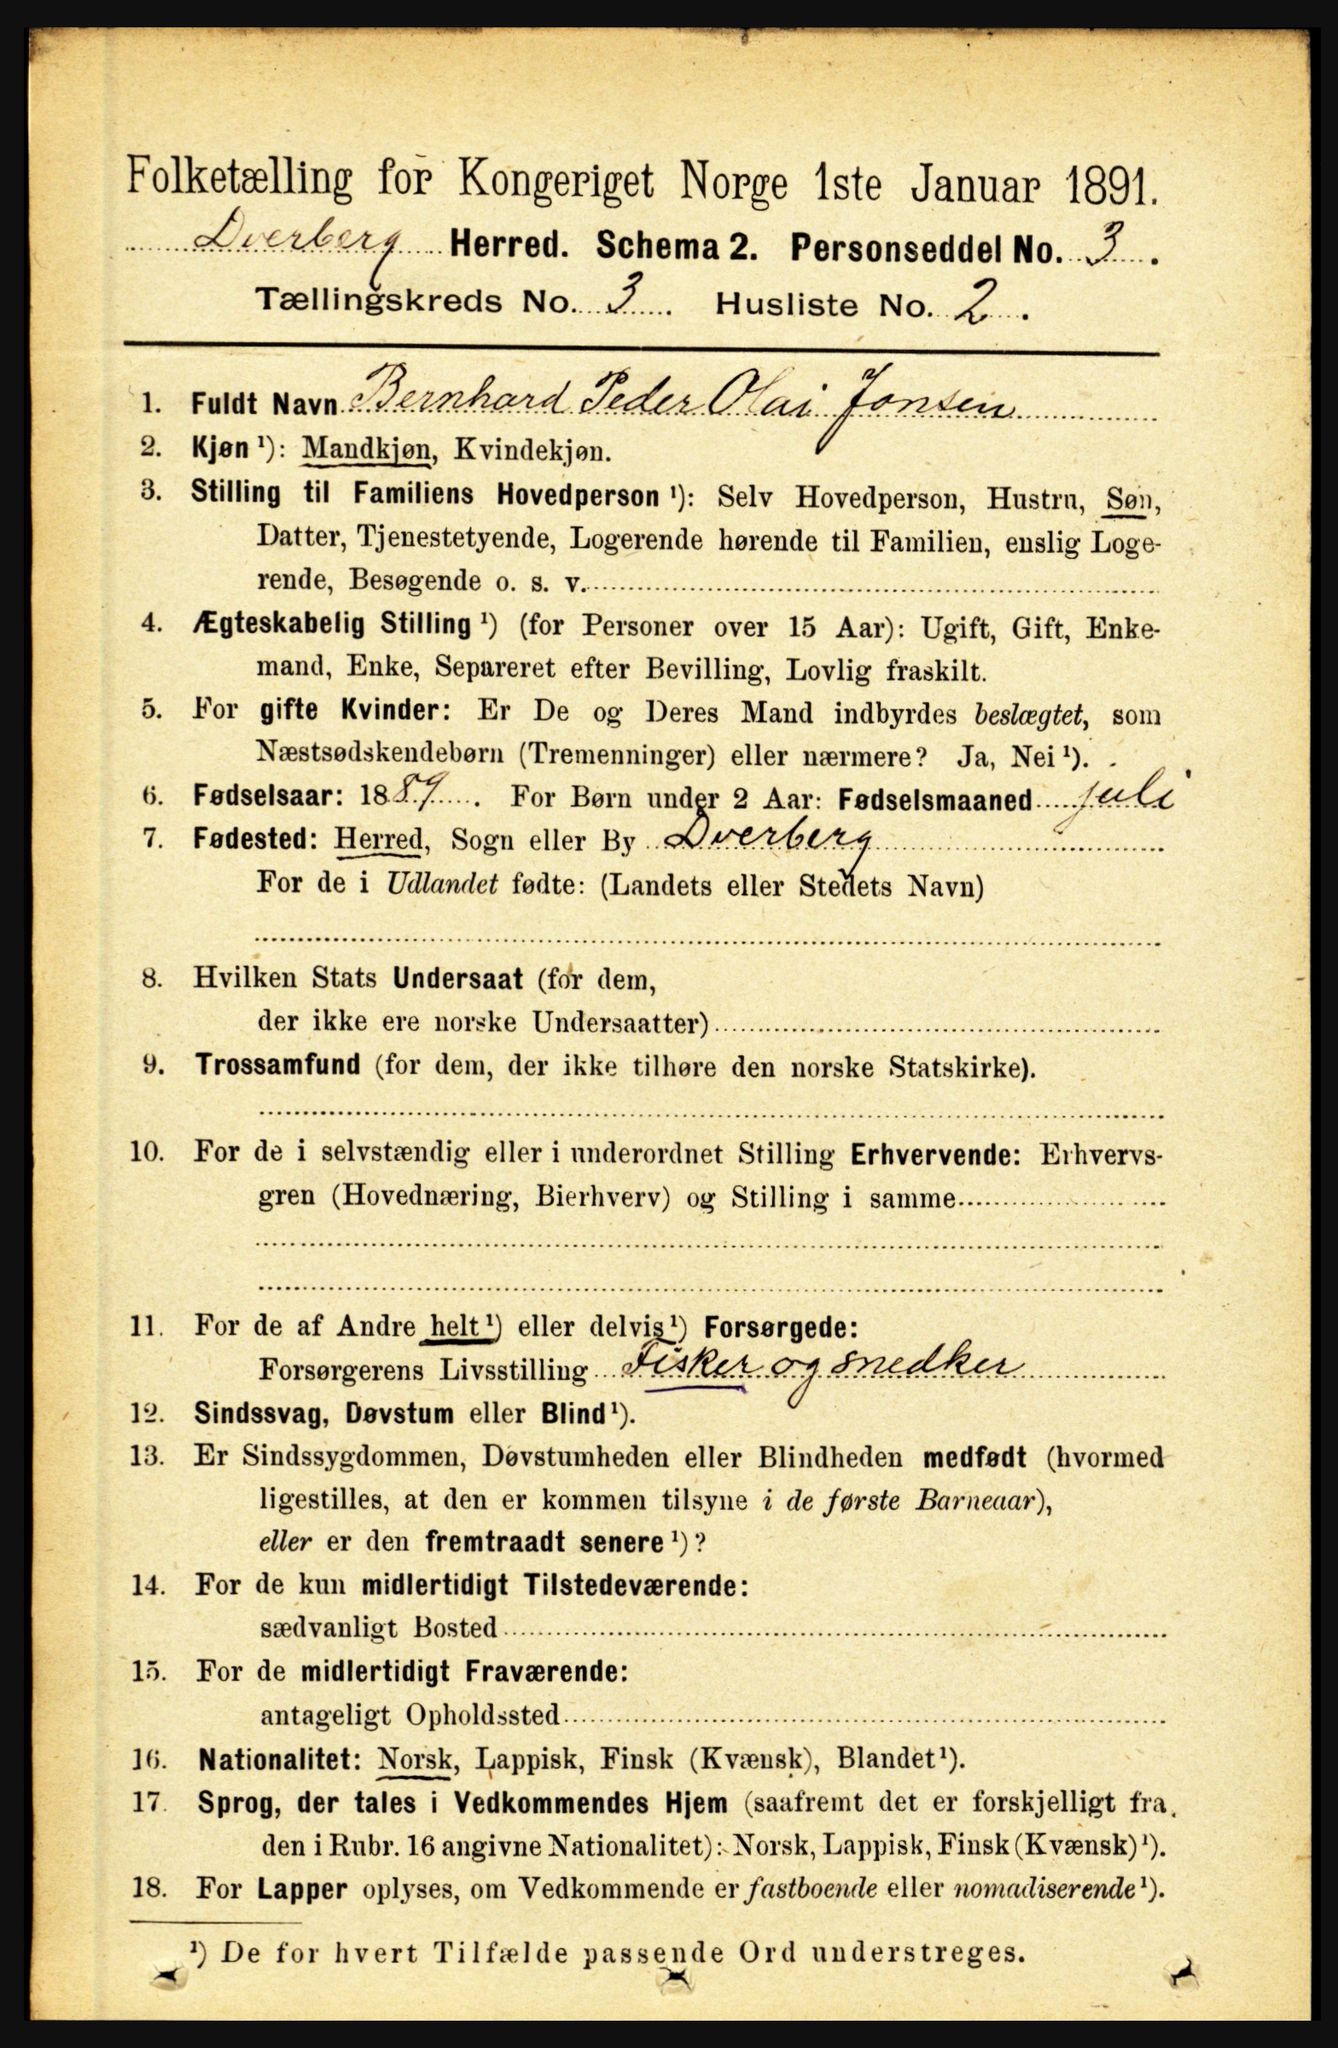 Folketælling for Kongeriget Norge 1ste Januar 1891.
Dverberg Herred. Schema 2. Personseddel No. 3.
Tællingskreds No. 3. Husliste No. 2.
1. Fuldt Navn Bernhard Peder Olai Jonsen
2. Kjøn ¹): Mandkjøn, Kvindekjøn.
3. Stilling til Familiens Hovedperson ¹): Selv Hovedperson, Hustru, Søn,
Datter, Tjenestetyende, Logerende hørende til Familien, enslig Loge-
rende, Besøgende o. s. v.
4. Ægteskabelig Stilling ¹) (for Personer over 15 Aar): Ugift, Gift, Enke-
mand, Enke, Separeret efter Bevilling, Lovlig fraskilt.
5. For gifte Kvinder: Er De og Deres Mand indbyrdes beslægtet, som
Næstsødskendebørn (Tremenninger) eller nærmere? Ja, Nei ¹).
6. Fødselsaar: 1889. For Børn under 2 Aar: Fødselsmaaned juli
7. Fødested: Herred, Sogn eller By Dverberg
For de i Udlandet fødte: (Landets eller Stedets Navn)
8. Hvilken Stats Undersaat (for dem,
der ikke ere norske Undersaatter)
9. Trossamfund (for dem, der ikke tilhøre den norske Statskirke).
10. For de i selvstændig eller i underordnet Stilling Erhvervende: Erhvervs-
gren (Hovednæring, Bierhverv) og Stilling i samme
11. For de af Andre helt ¹) eller delvis ¹) Forsørgede:
Forsørgerens Livsstilling Fisker og snedker
12. Sindssvag, Døvstum eller Blind ¹).
13. Er Sindssygdommen, Døvstumheden eller Blindheden medfødt (hvormed
ligestilles, at den er kommen tilsyne i de første Barneaar),
eller er den fremtraadt senere ¹)?
14. For de kun midlertidigt Tilstedeværende:
sædvanligt Bosted
15. For de midlertidigt Fraværende:
antageligt Opholdssted
16. Nationalitet: Norsk, Lappisk, Finsk (Kvænsk), Blandet ¹).
17. Sprog, der tales i Vedkommendes Hjem (saafremt det er forskjelligt fra
den i Rubr. 16 angivne Nationalitet): Norsk, Lappisk, Finsk (Kvænsk) ¹).
18. For Lapper oplyses, om Vedkommende er fastboende eller nomadiserende ¹).
¹) De for hvert Tilfælde passende Ord understreges.